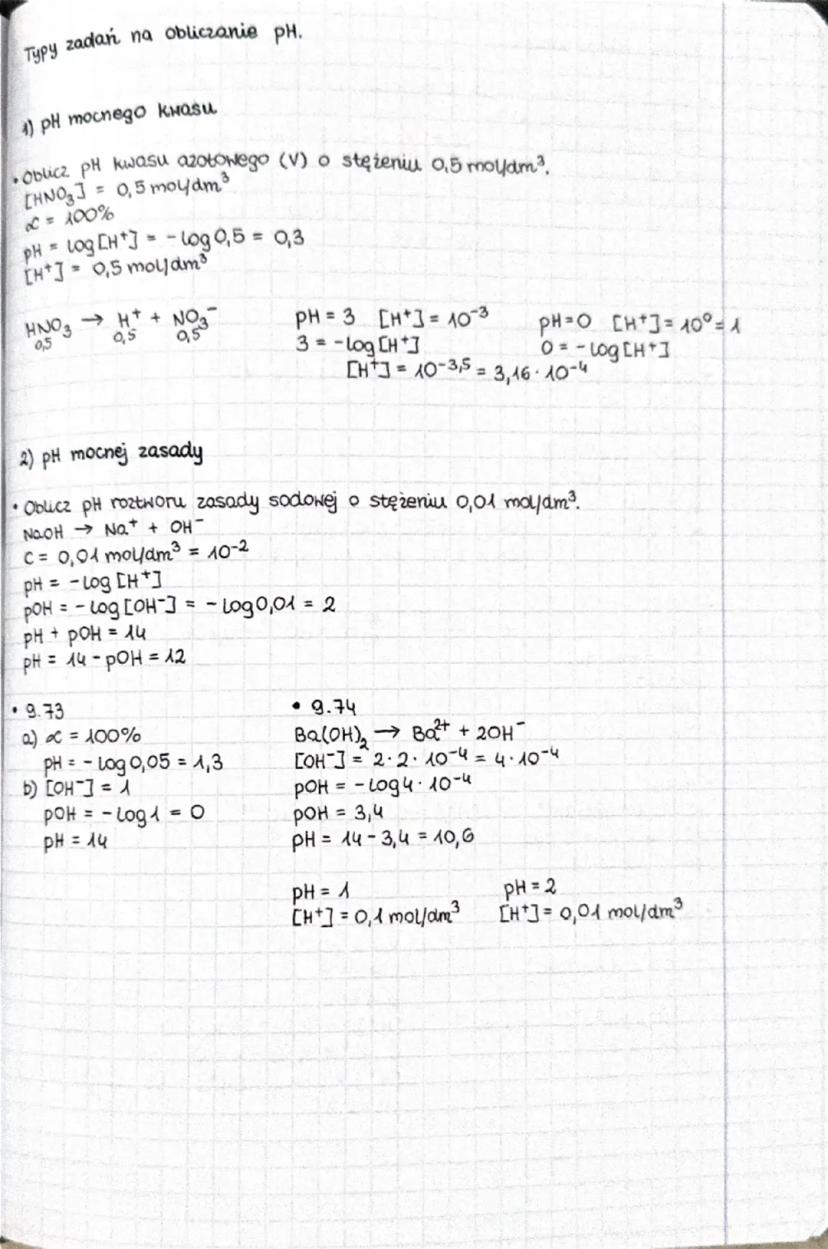 Typy zadań na obliczanie pH.
1) pH mocnego kwasu
• Oblicz pH kwasu azotowego (V) o stężeniu 0,5 mol/dm³.
[HNO₃] = 0,5 mol/dm³
α = 100%
pH = log[H⁺] = -log0,5 = 0,3
[H⁺] = 0,5 mol/dm³
HNO₃ → H⁺ + NO₃⁻
0,5 0,5 0,5
pH = 3 [H⁺] = 10⁻³
3 = -log[H⁺]
[H⁺] = 10⁻³,⁵ = 3,16 · 10⁻⁴
pH=0 [H⁺] = 10⁰ = 1
0 = -log[H⁺]
2) pH mocnej zasady
• Oblicz pH roztworu zasady sodowej o stężeniu 0,01 mol/dm³.
NaOH → Na⁺ + OH⁻
C = 0,01 mol/dm³ = 10⁻²
pH = -log[H⁺]
pOH = -log[OH⁻] = -log0,01 = 2
pH + pOH = 14
pH = 14 - pOH = 12
• 9.73
a) α = 100%
pH = -log0,05 = 1,3
b) [OH⁻] = 1
pOH = -log1 = 0
pH = 14
• 9.74
Ba(OH)₂ → Ba²⁺ + 2OH⁻
[OH⁻] = 2·2·10⁻⁴ = 4·10⁻⁴
pOH = -log4·10⁻⁴
pOH = 3,4
pH = 14 - 3,4 = 10,6
pH = 1
[H⁺] = 0,1 mol/dm³
pH = 2
[H⁺] = 0,01 mol/dm³